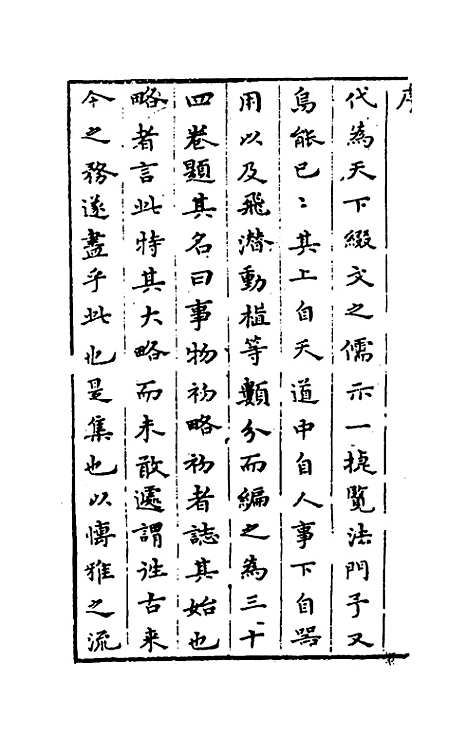 序
代為天下綴文之儒示一捷覽法門子又
烏能已〻其上自天道中自人事下自器
用以及飛潜動植等類分而編之為三十
四卷題其名曰事物初略初者誌其始也
略者言此特其大略而未敢遽謂往古来
今之務遂盡乎此也是集也以慱雅之流